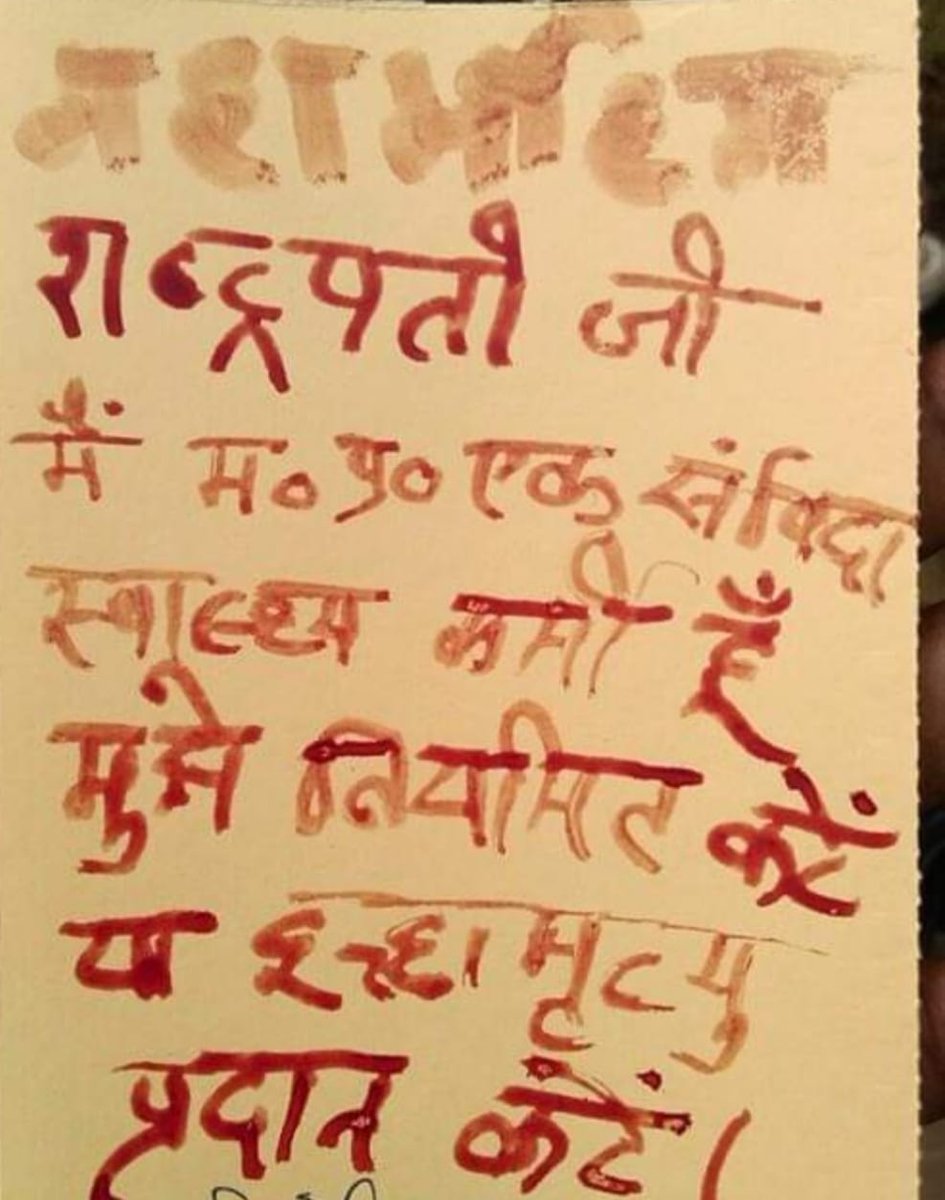 महामहिम
राष्ट्रपती जी
मैं म०प्र० एक संविदा
स्वास्थ्य कर्मी हूँ
मुझे नियमित करें
या इच्छा मृत्यु
प्रदान करें।